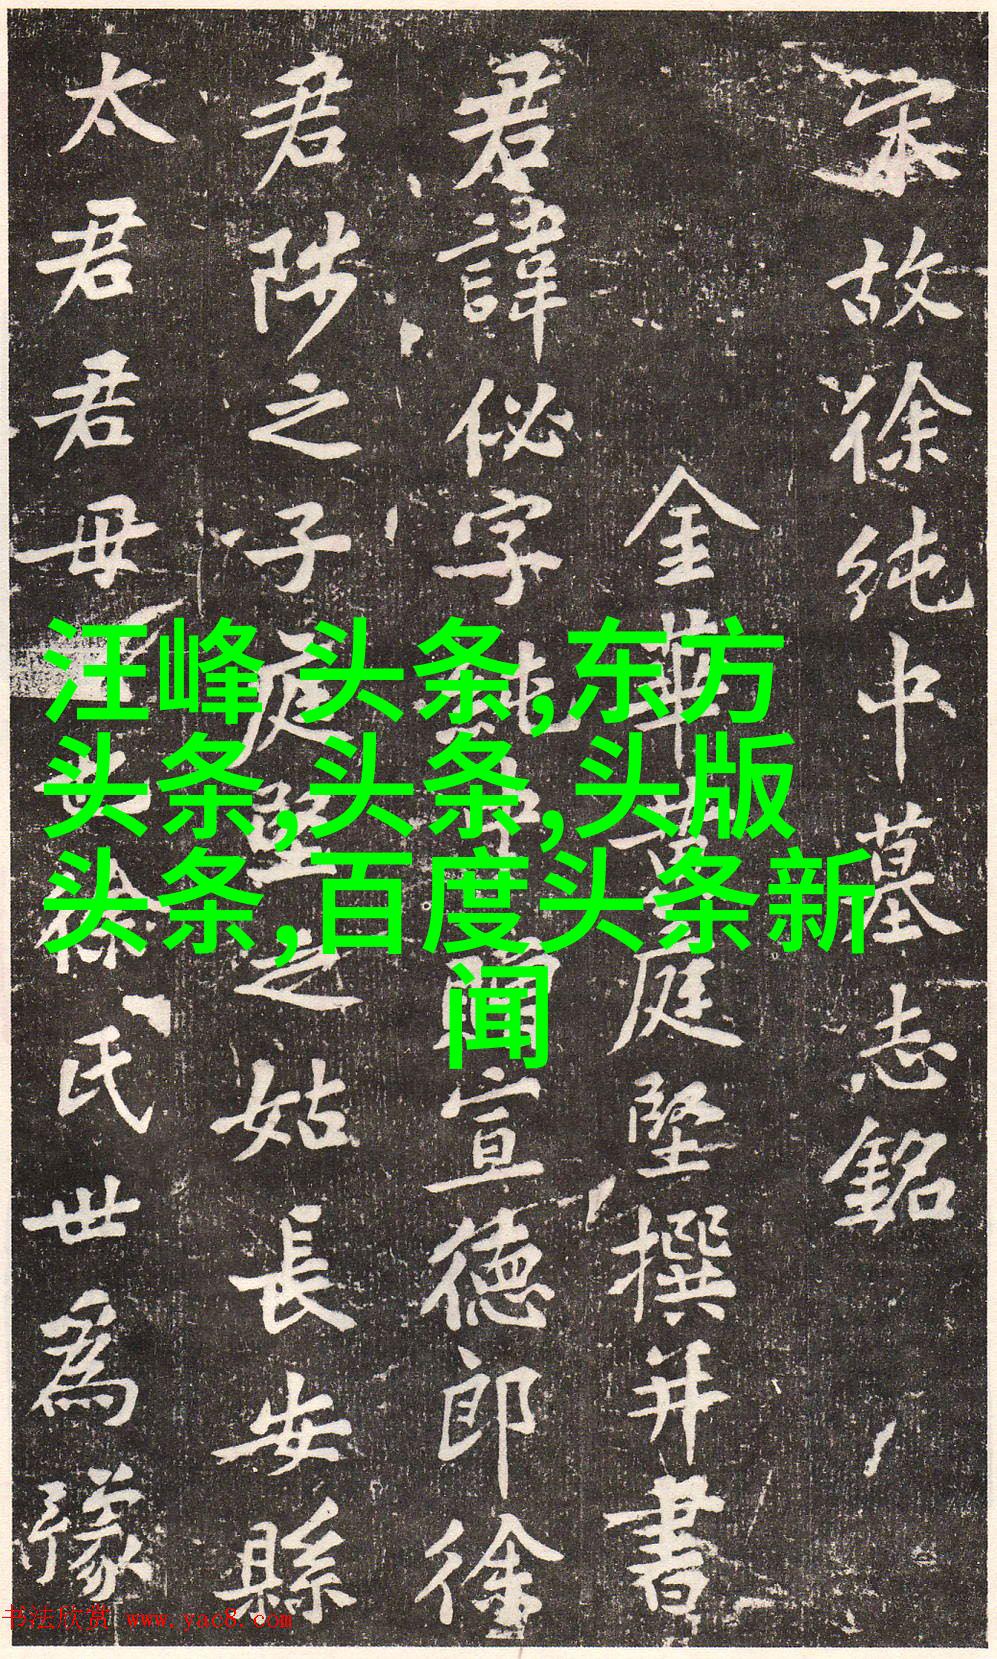 宋故徐純中墓志銘
金華黄庭堅撰并書
君諱佖字純宣德郎徐
君陟之子庭堅之姑長安縣
太君君毋徐氏世爲豫
汪峰 头条,东方
头条,头条,头版
头条,百度头条新
闻
书法欣赏 www.yac8.com